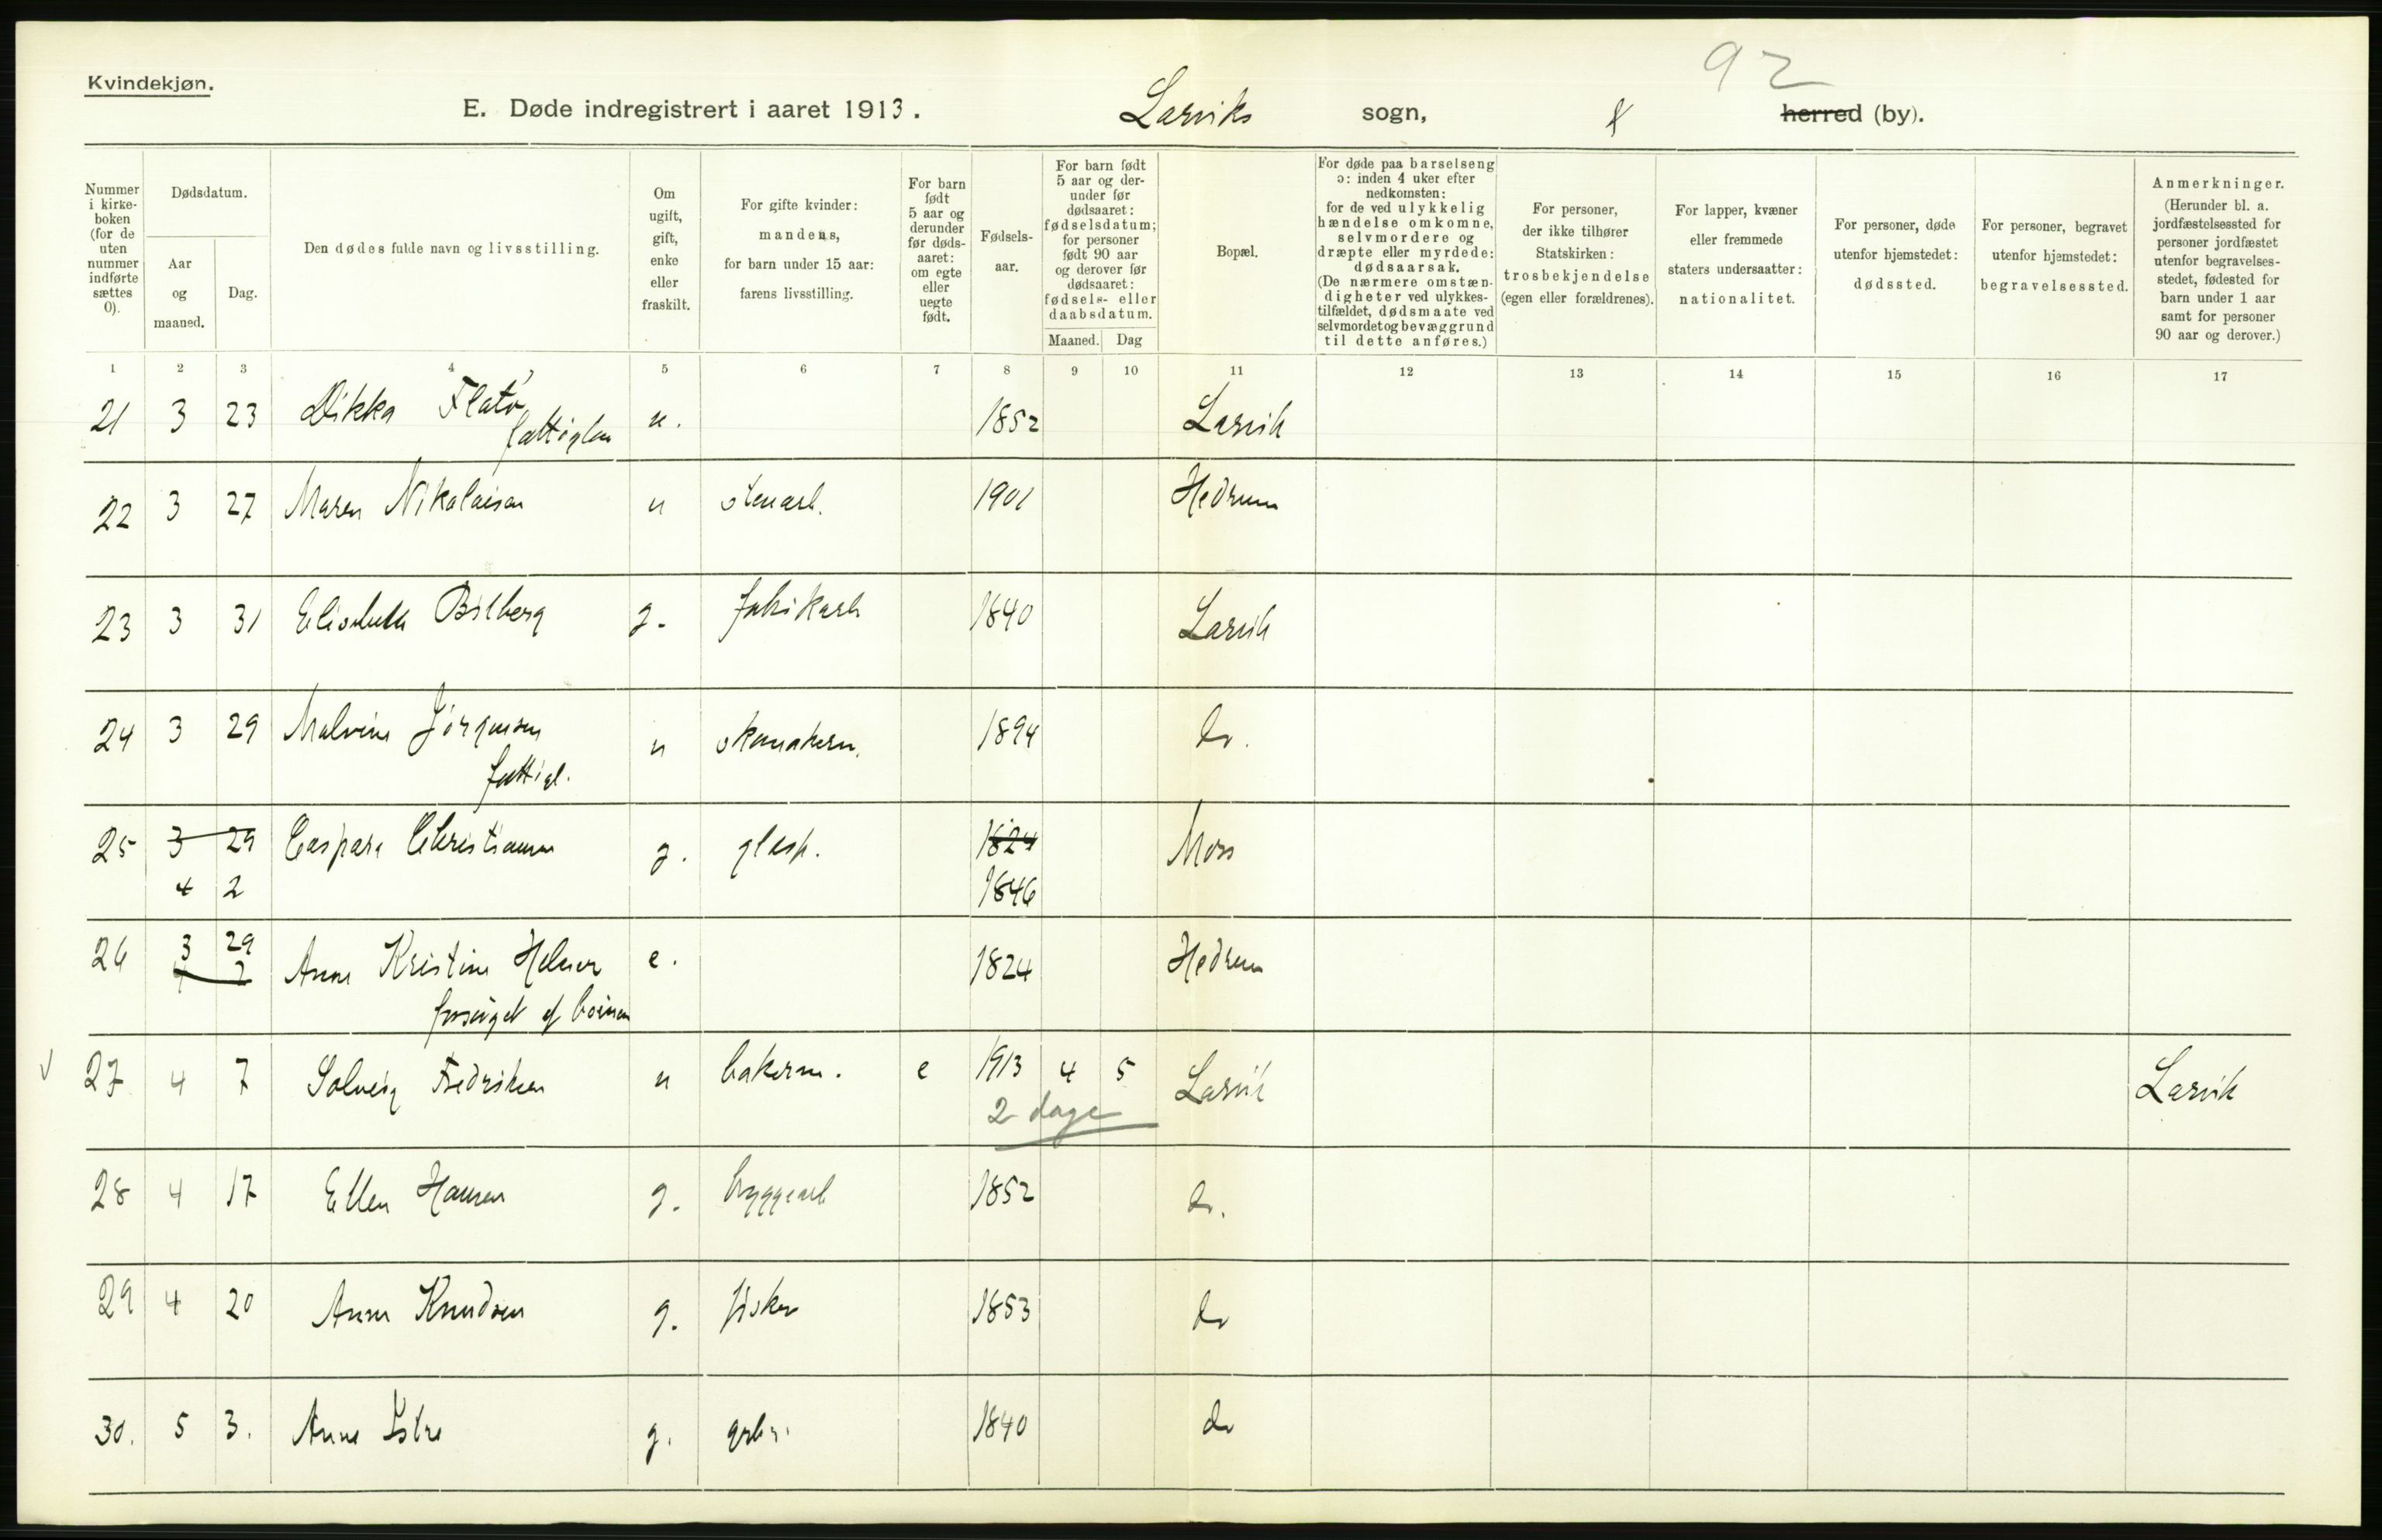 Kvindekjøn.
92
E. Døde indregistrert i aaret 1913. Larviks sogn, herred (by).
Nummer i kirke-boken (for de uten nummer indførte sættes 0).
Dødsdatum.
Aar og maaned.
Dag.
Den dødes fulde navn og livsstilling.
Om ugift, gift, enke eller fraskilt.
For gifte kvinder: mandens, for barn under 15 aar: farens livsstilling.
For barn født 5 aar og derunder før døds-aaret: om egte eller uegte født.
Fødsels-aar.
For barn født 5 aar og der-under før dødsaaret: fødselsdatum; for personer født 90 aar og derover før dødsaaret: fødsels- eller daabsdatum.
Maaned. Dag
Bopæl.
For døde paa barselseng ɔ: inden 4 uker efter nedkomsten: for de ved ulykkelig hændelse omkomne, selvmordere og dræpte eller myrdede: dødsaarsak. (De nærmere omstæn-digheter ved ulykkes-tilfældet, dødsmaate ved selvmordet og bevæggrund til dette anføres.)
For personer, der ikke tilhører Statskirken: trosbekjendelse (egen eller forældrenes).
For lapper, kvæner eller fremmede staters undersaatter: nationalitet.
For personer, døde utenfor hjemstedet: dødssted.
For personer, begravet utenfor hjemstedet: begravelsessted.
Anmerkninger. (Herunder bl. a. jordfæstelsessted for personer jordfæstet utenfor begravelses-stedet, fødested for barn under 1 aar samt for personer 90 aar og derover.)
1 2 3 4 5 6 7 8 9 10 11 12 13 14 15 16 17
21 3 23 Dikka Flatø u. 1852 Larvik
fattiglem
22 3 27 Maren Nikolaisen u stenarb. 1901 Hedrum
23 3 31 Elisabeth Bilberg g. fabrikarb 1840 Larvik
24 3 29 Malvine Jørgensen u skomakerm. 1894 do.
fattigl.
25 3 29 Caspara Christiansen g. glasp. 1824 Moss
4 2 1846
26 3 29 Anne Kristine Helner e. 1824 Hedrum
4 2
forsørget af børnene
27 4 7 Solveig Fredriksen u bakerm. e 1913 4 5 Larvik Larvik
2 dage
28 4 17 Ellen Hansen g. bryggearb 1852 do.
29 4 20 Anne Knudsen g. fisker 1853 do
30. 5 3. Anne Istre g. grbr. 1840 do